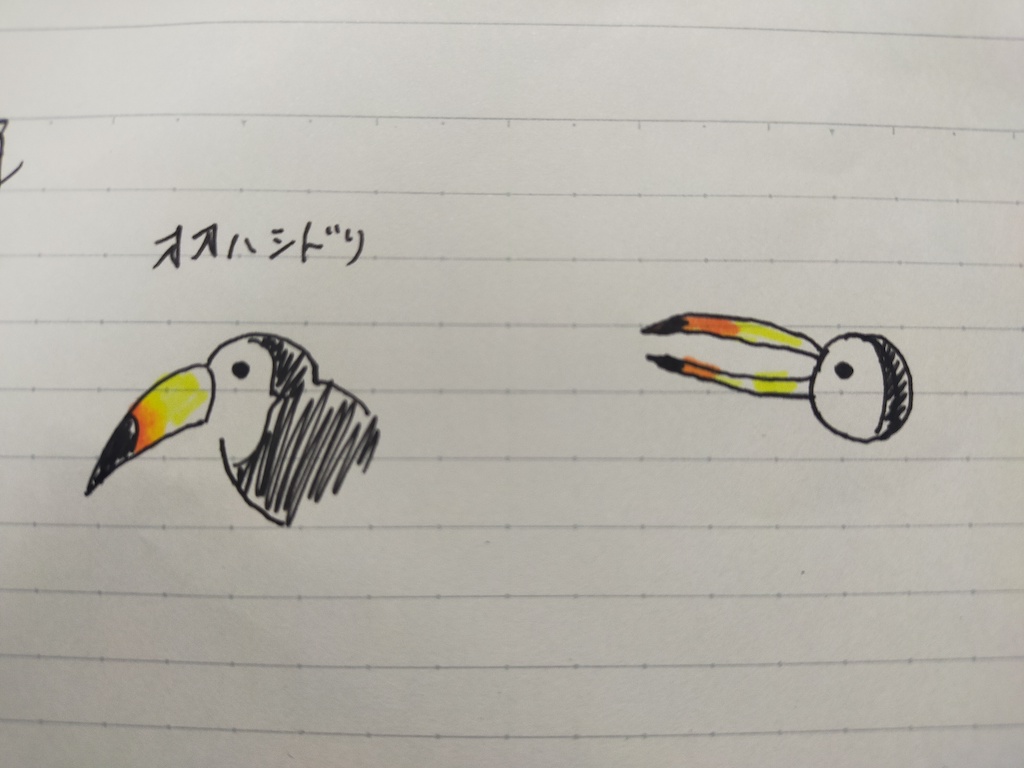 オオハシドリ